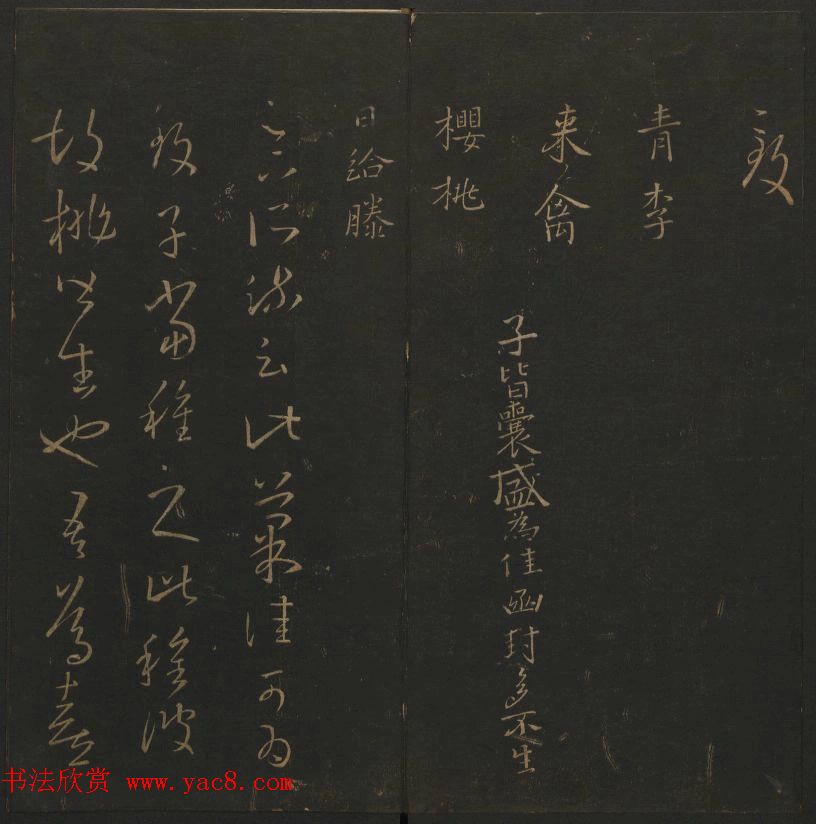 致
青李
來禽
櫻桃
子皆囊盛為佳函封多不生
日給滕
足下所疏云此菓佳可為
致子當種之此種彼
胡桃皆生也吾篤喜
书法欣赏 www.yac8.com